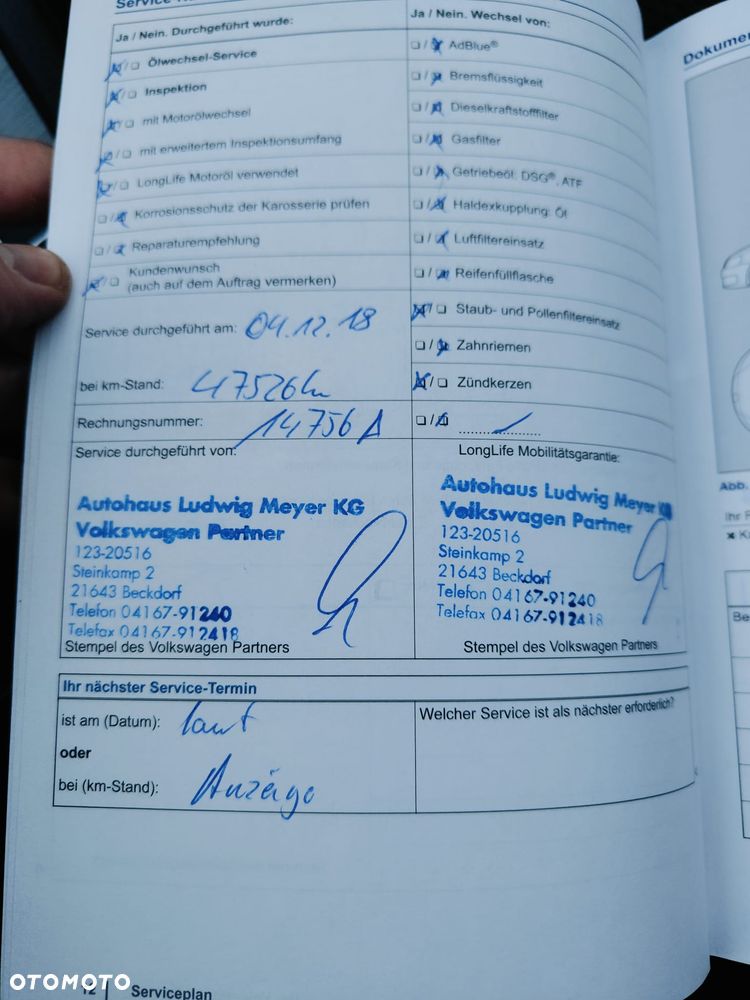 Ja / Nein. Durchgeführt wurde:
Ölwechsel-Service
Inspektion
mit Motorölwechsel
mit erweitertem Inspektionsumfang
LongLife Motoröl verwendet
Korrosionsschutz der Karosserie prüfen
Reparaturempfehlung
Kundenwunsch
(auch auf dem Auftrag vermerken)
Service durchgeführt am: 04.12.18
bei km-Stand: 47526 km
Rechnungsnummer: 14756 A
Service durchgeführt von:
Autohaus Ludwig Meyer KG
Volkswagen Partner
123-20516
Steinkamp 2
21643 Beckdorf
Telefon 04167-91240
Telefax 04167-912418
Stempel des Volkswagen Partners
Ja / Nein. Wechsel von:
AdBlue®
Bremsflüssigkeit
Dieselkraftstofffilter
Gasfilter
Getriebeöl: DSG®, ATF
Haldexkupplung: Öl
Luftfiltereinsatz
Reifenfüllflasche
Staub- und Pollenfiltereinsatz
Zahnriemen
Zündkerzen
LongLife Mobilitätsgarantie:
Autohaus Ludwig Meyer KG
Volkswagen Partner
123-20516
Steinkamp 2
21643 Beckdorf
Telefon 04167-91240
Telefax 04167-912418
Stempel des Volkswagen Partners
Ihr nächster Service-Termin
ist am (Datum): laut
oder
bei (km-Stand): Anzeige
Welcher Service ist als nächster erforderlich?
12 Serviceplan
Abb.
OTOMOTO